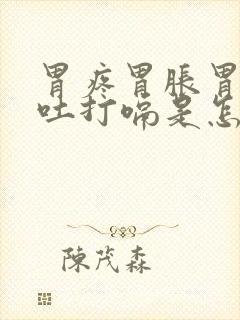 胃疼胃脹胃
吐打嗝是怎
陳茂森